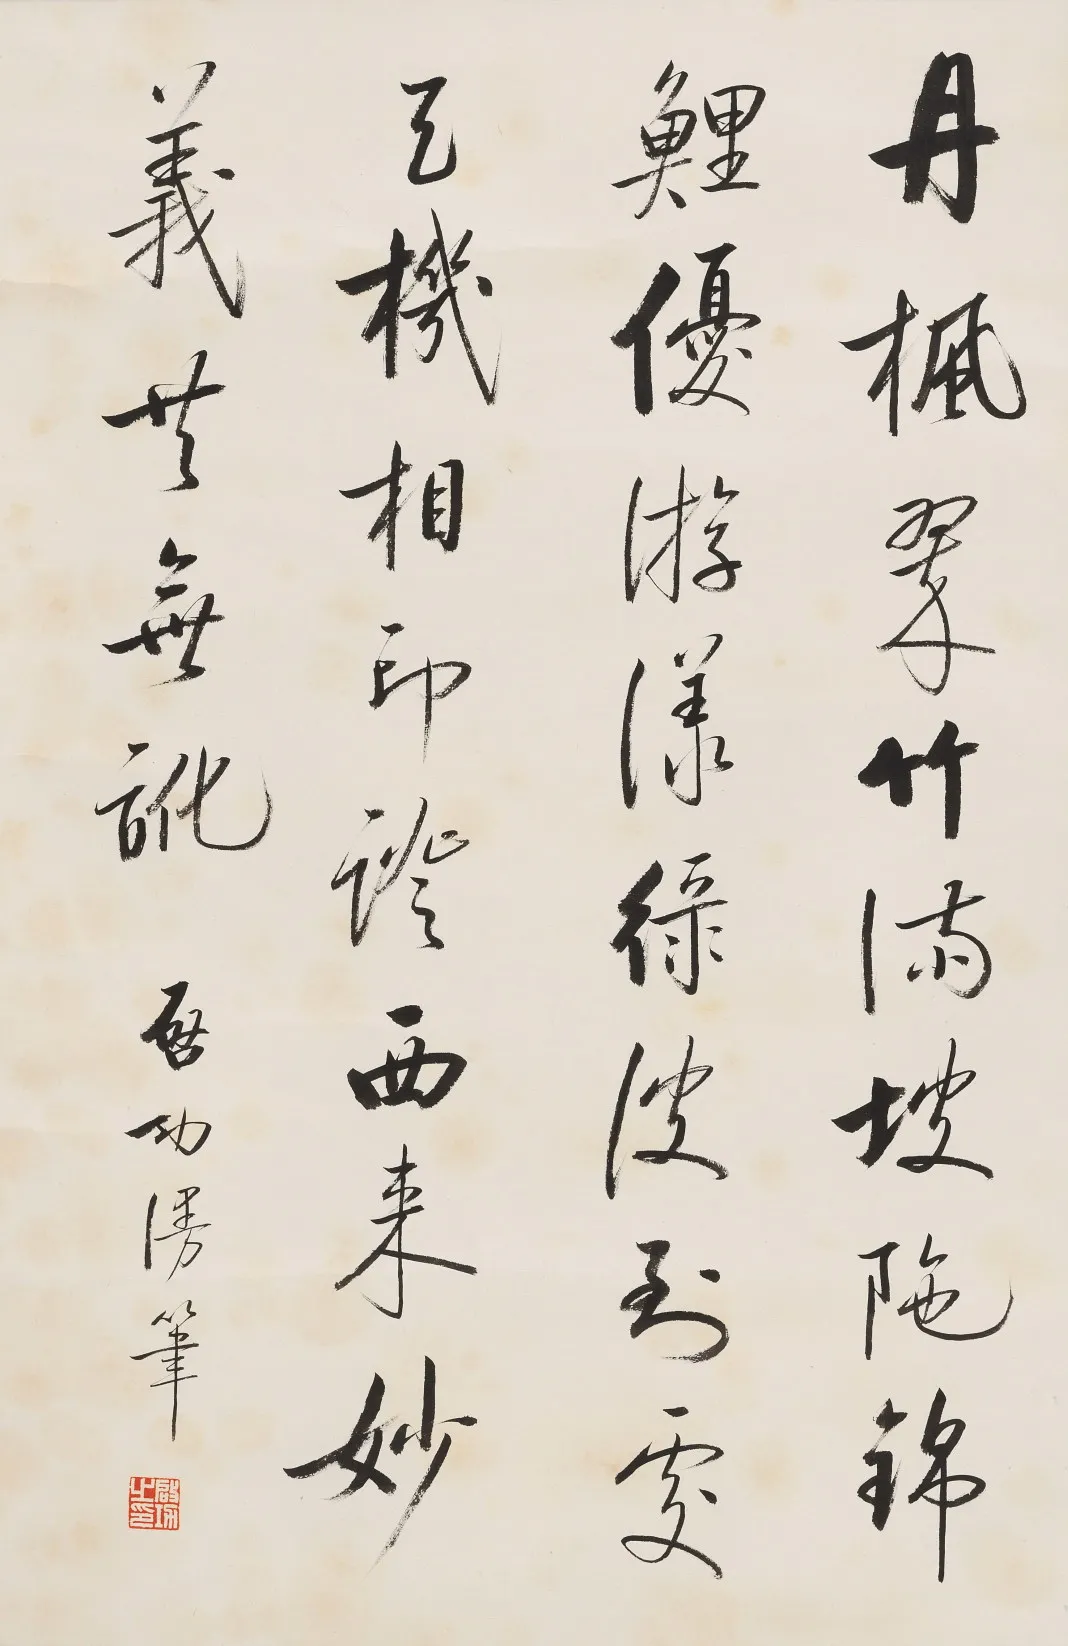 丹楓翠竹滿坡陁錦
鯉優游漾綠波到處
天機相印證西來妙
義共無訛
啟功漫筆
啟功之印